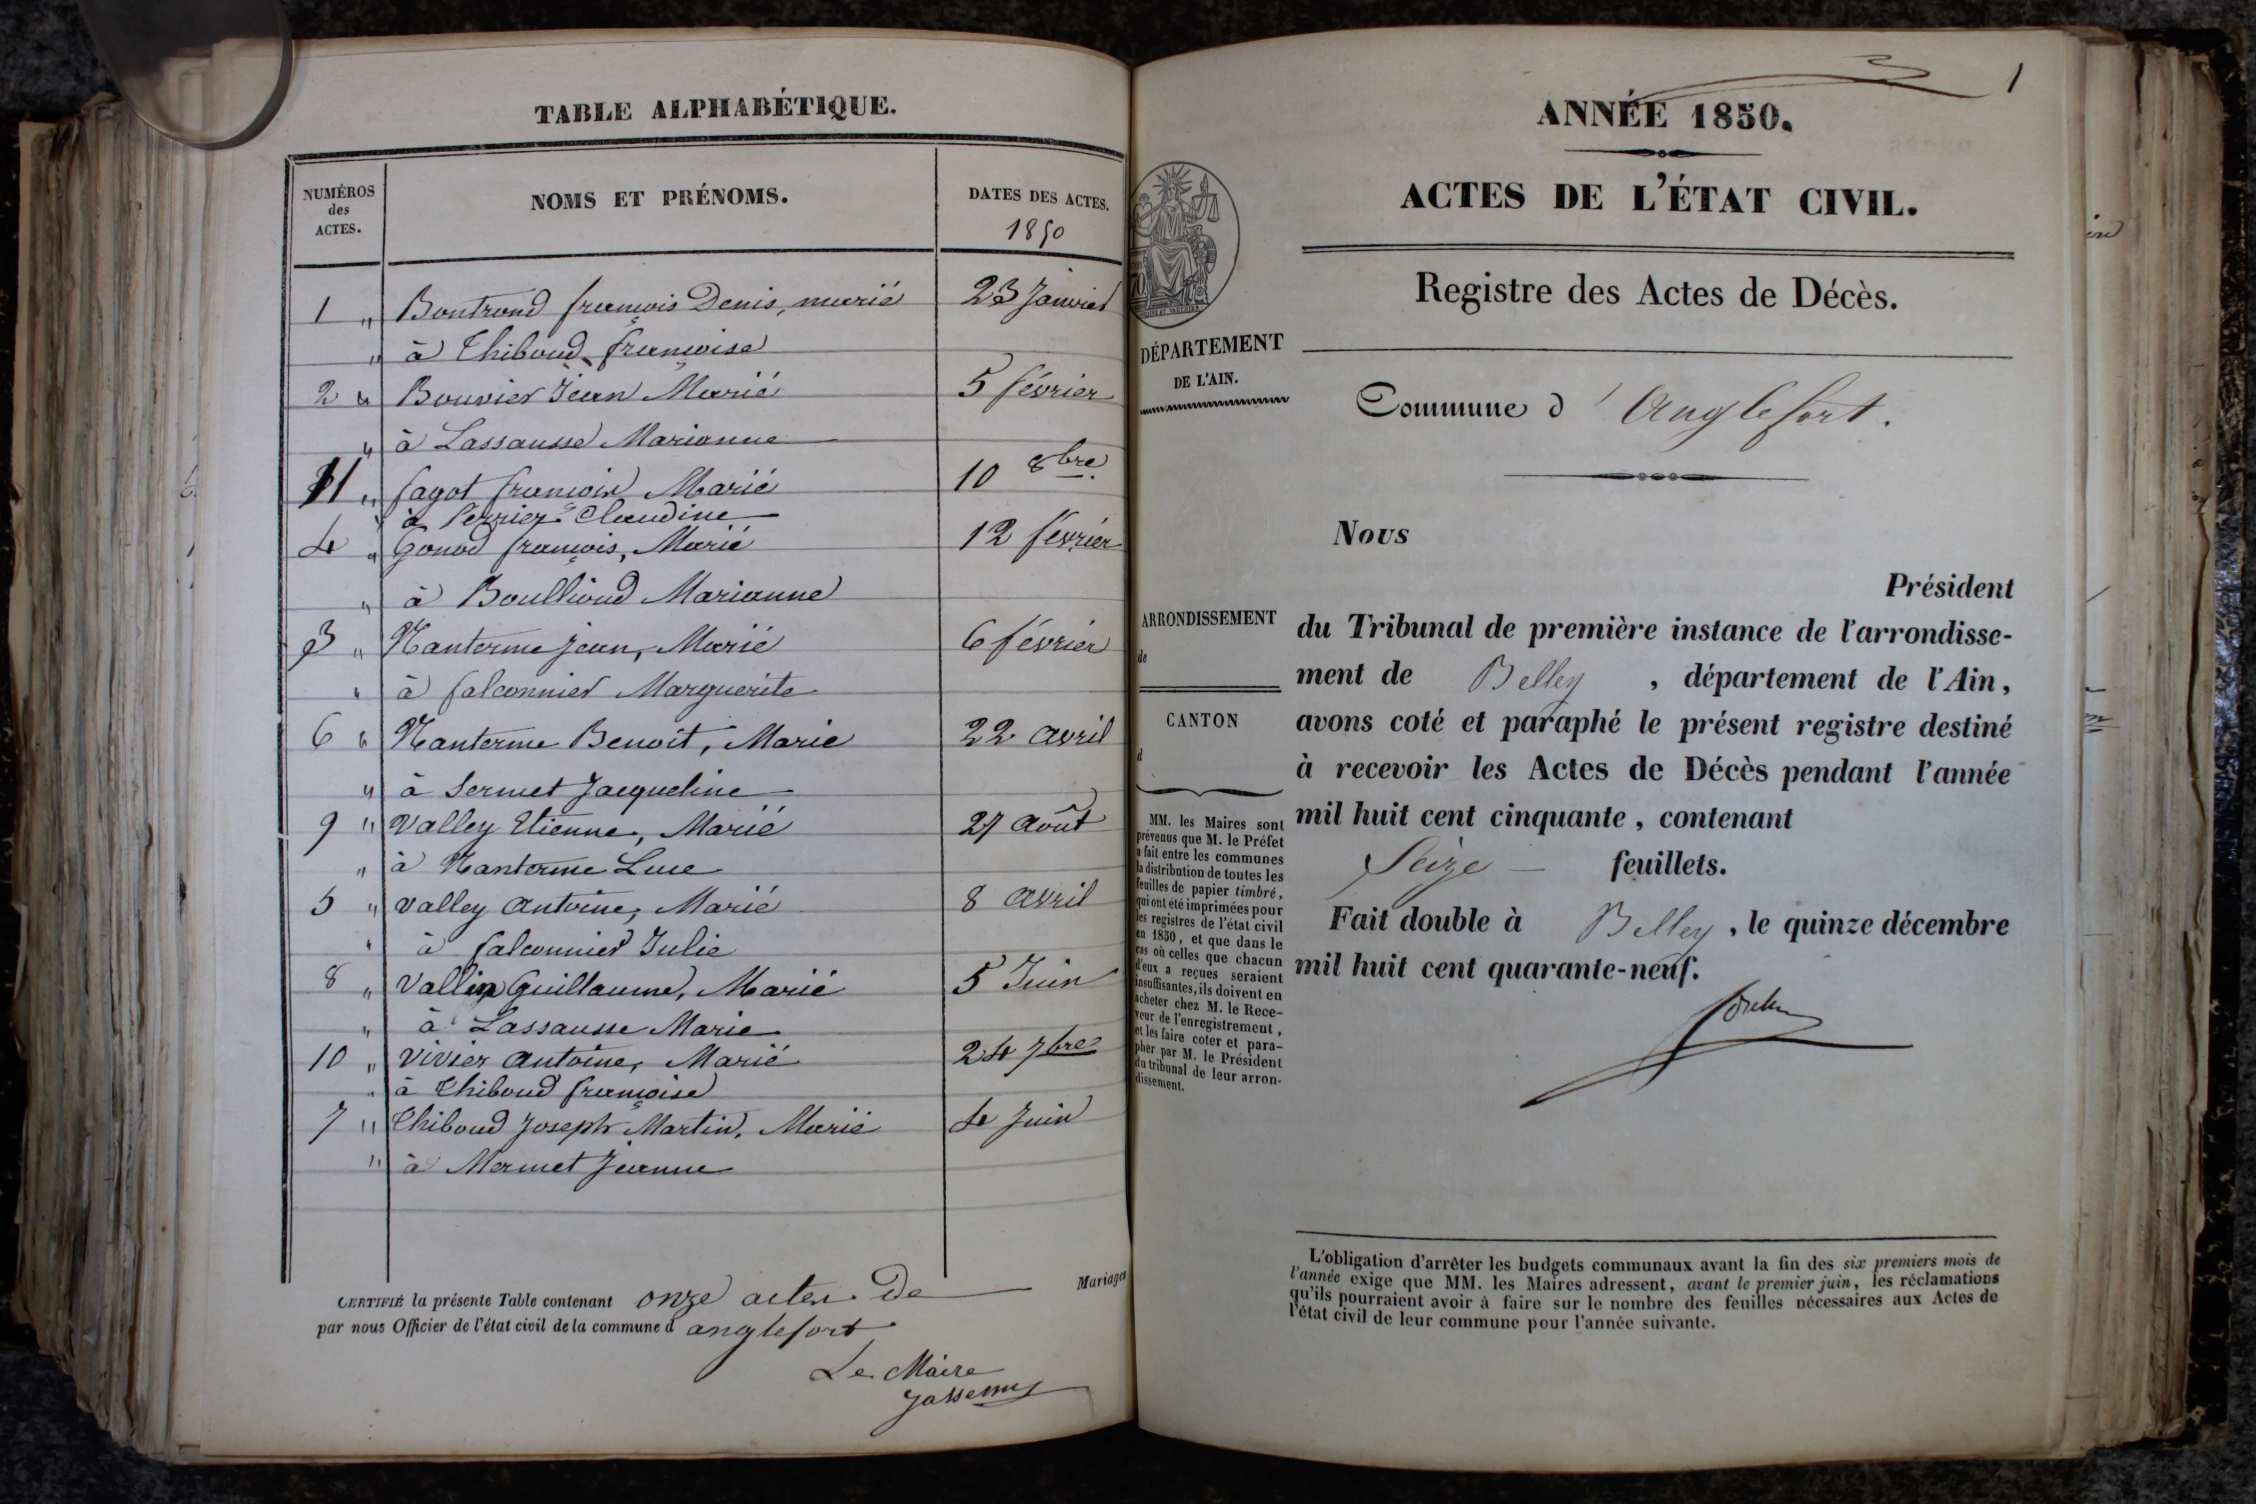 TABLE ALPHABÉTIQUE.
NUMÉROS
des
ACTES.
NOMS ET PRÉNOMS.
DATES DES ACTES.
1850
1 " Bontrond françois Denis, marié 23 Janvier
" à Thiboud françoise
2 " Bouvier Jean Marié 5 février
" à Lassausse Marianne
11 " fagot françois Marié 10 8bre.
" à Perrier Claudine
4 " Gonod françois, Marié 12 février
" à Boullioud Marianne
3 " Nanterme Jean, Marié 6 février
" à falconnier Marguerite
6 " Nanterme Benoit, Marié 22 avril
" à Sermet Jacqueline
9 " Valley Etienne, Marié 27 août
" à Nanterme Luce
5 " Valley Antoine, Marié 8 avril
" à falconnier Julie
8 " Vallin Guillaume, Marié 5 Juin
" à Lassausse Marie
10 " Vivier Antoine, Marié 24 7bre
" à Thiboud françoise
7 " Thiboud Joseph Martin, Marié 4 Juin
" à Mermet Jeanne
CERTIFIÉ la présente Table contenant onze actes de Mariages
par nous Officier de l'état civil de la commune d anglefort
Le Maire
1
ANNÉE 1850.
ACTES DE L'ÉTAT CIVIL.
Registre des Actes de Décès.
DÉPARTEMENT
DE L'AIN.
Commune d'Anglefort.
ARRONDISSEMENT
de
CANTON
d
MM. les Maires sont
prévenus que M. le Préfet
a fait entre les communes
la distribution de toutes les
feuilles de papier timbré,
qui ont été imprimées pour
les registres de l'état civil
en 1850, et que dans le
cas où celles que chacun
d'eux a reçues seraient
insuffisantes, ils doivent en
acheter chez M. le Rece-
veur de l'enregistrement,
et les faire coter et para-
pher par M. le Président
du tribunal de leur arron-
dissement.
Nous
Président
du Tribunal de première instance de l'arrondisse-
ment de Belley , département de l'Ain,
avons coté et paraphé le présent registre destiné
à recevoir les Actes de Décès pendant l'année
mil huit cent cinquante, contenant
Seize feuillets.
Fait double à Belley, le quinze décembre
mil huit cent quarante-neuf.
L'obligation d'arrêter les budgets communaux avant la fin des six premiers mois de
l'année exige que MM. les Maires adressent, avant le premier juin, les réclamations
qu'ils pourraient avoir à faire sur le nombre des feuilles nécessaires aux Actes de
l'état civil de leur commune pour l'année suivante.